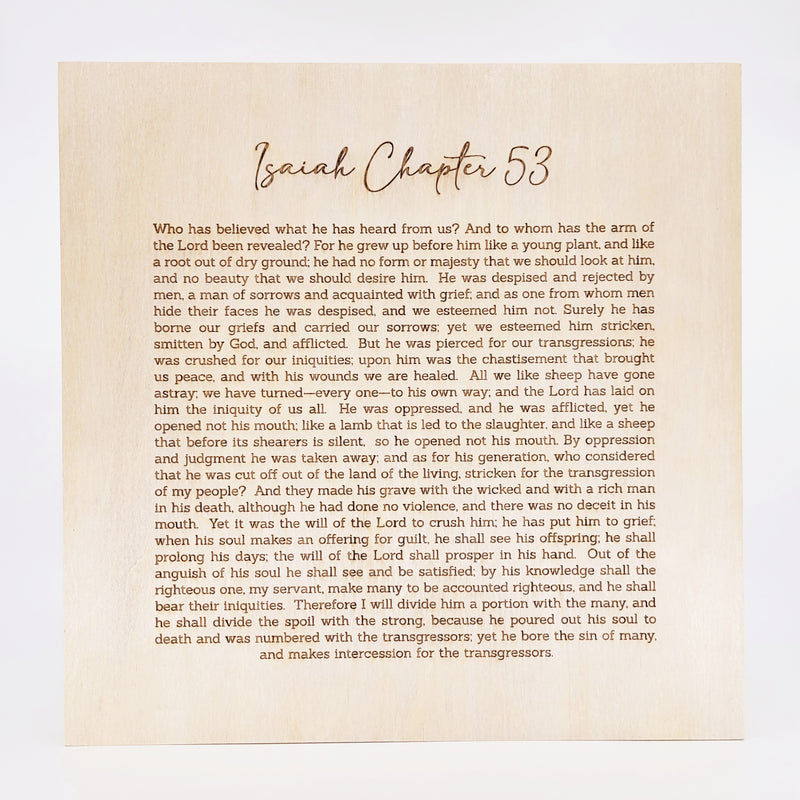 Isaiah Chapter 53
Who has believed what he has heard from us? And to whom has the arm of
the Lord been revealed? For he grew up before him like a young plant, and like
a root out of dry ground; he had no form or majesty that we should look at him,
and no beauty that we should desire him. He was despised and rejected by
men, a man of sorrows and acquainted with grief; and as one from whom men
hide their faces he was despised, and we esteemed him not. Surely he has
borne our griefs and carried our sorrows; yet we esteemed him stricken,
smitten by God, and afflicted. But he was pierced for our transgressions; he
was crushed for our iniquities; upon him was the chastisement that brought
us peace, and with his wounds we are healed. All we like sheep have gone
astray; we have turned—every one—to his own way; and the Lord has laid on
him the iniquity of us all. He was oppressed, and he was afflicted, yet he
opened not his mouth; like a lamb that is led to the slaughter, and like a sheep
that before its shearers is silent, so he opened not his mouth. By oppression
and judgment he was taken away; and as for his generation, who considered
that he was cut off out of the land of the living, stricken for the transgression
of my people? And they made his grave with the wicked and with a rich man
in his death, although he had done no violence, and there was no deceit in his
mouth. Yet it was the will of the Lord to crush him; he has put him to grief;
when his soul makes an offering for guilt, he shall see his offspring; he shall
prolong his days; the will of the Lord shall prosper in his hand. Out of the
anguish of his soul he shall see and be satisfied; by his knowledge shall the
righteous one, my servant, make many to be accounted righteous, and he shall
bear their iniquities. Therefore I will divide him a portion with the many, and
he shall divide the spoil with the strong, because he poured out his soul to
death and was numbered with the transgressors; yet he bore the sin of many,
and makes intercession for the transgressors.